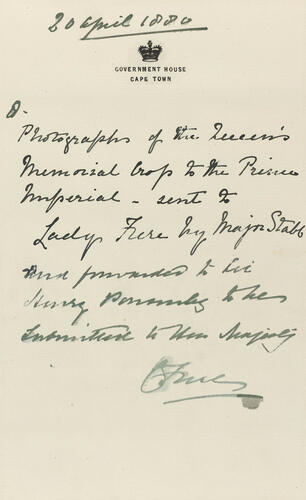 20 April 1880
GOVERNMENT HOUSE
CAPE TOWN
Photographs of the Queen's
Memorial Crop to the Prince
Imperial - sent to
Lady Frere by Major Stabb
and forwarded to Sir
Henry Ponsonby to be
submitted to Her Majesty